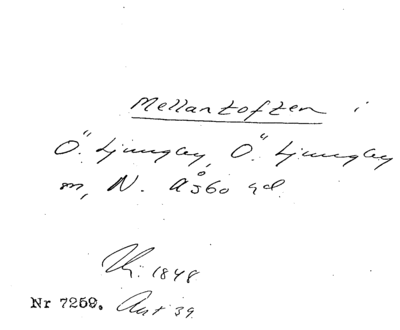 Mellantoften i
Ö. Ljungby, Ö. Ljungby
sn, N. Åsbo hd.
1848
Nr 7259. Avt 39